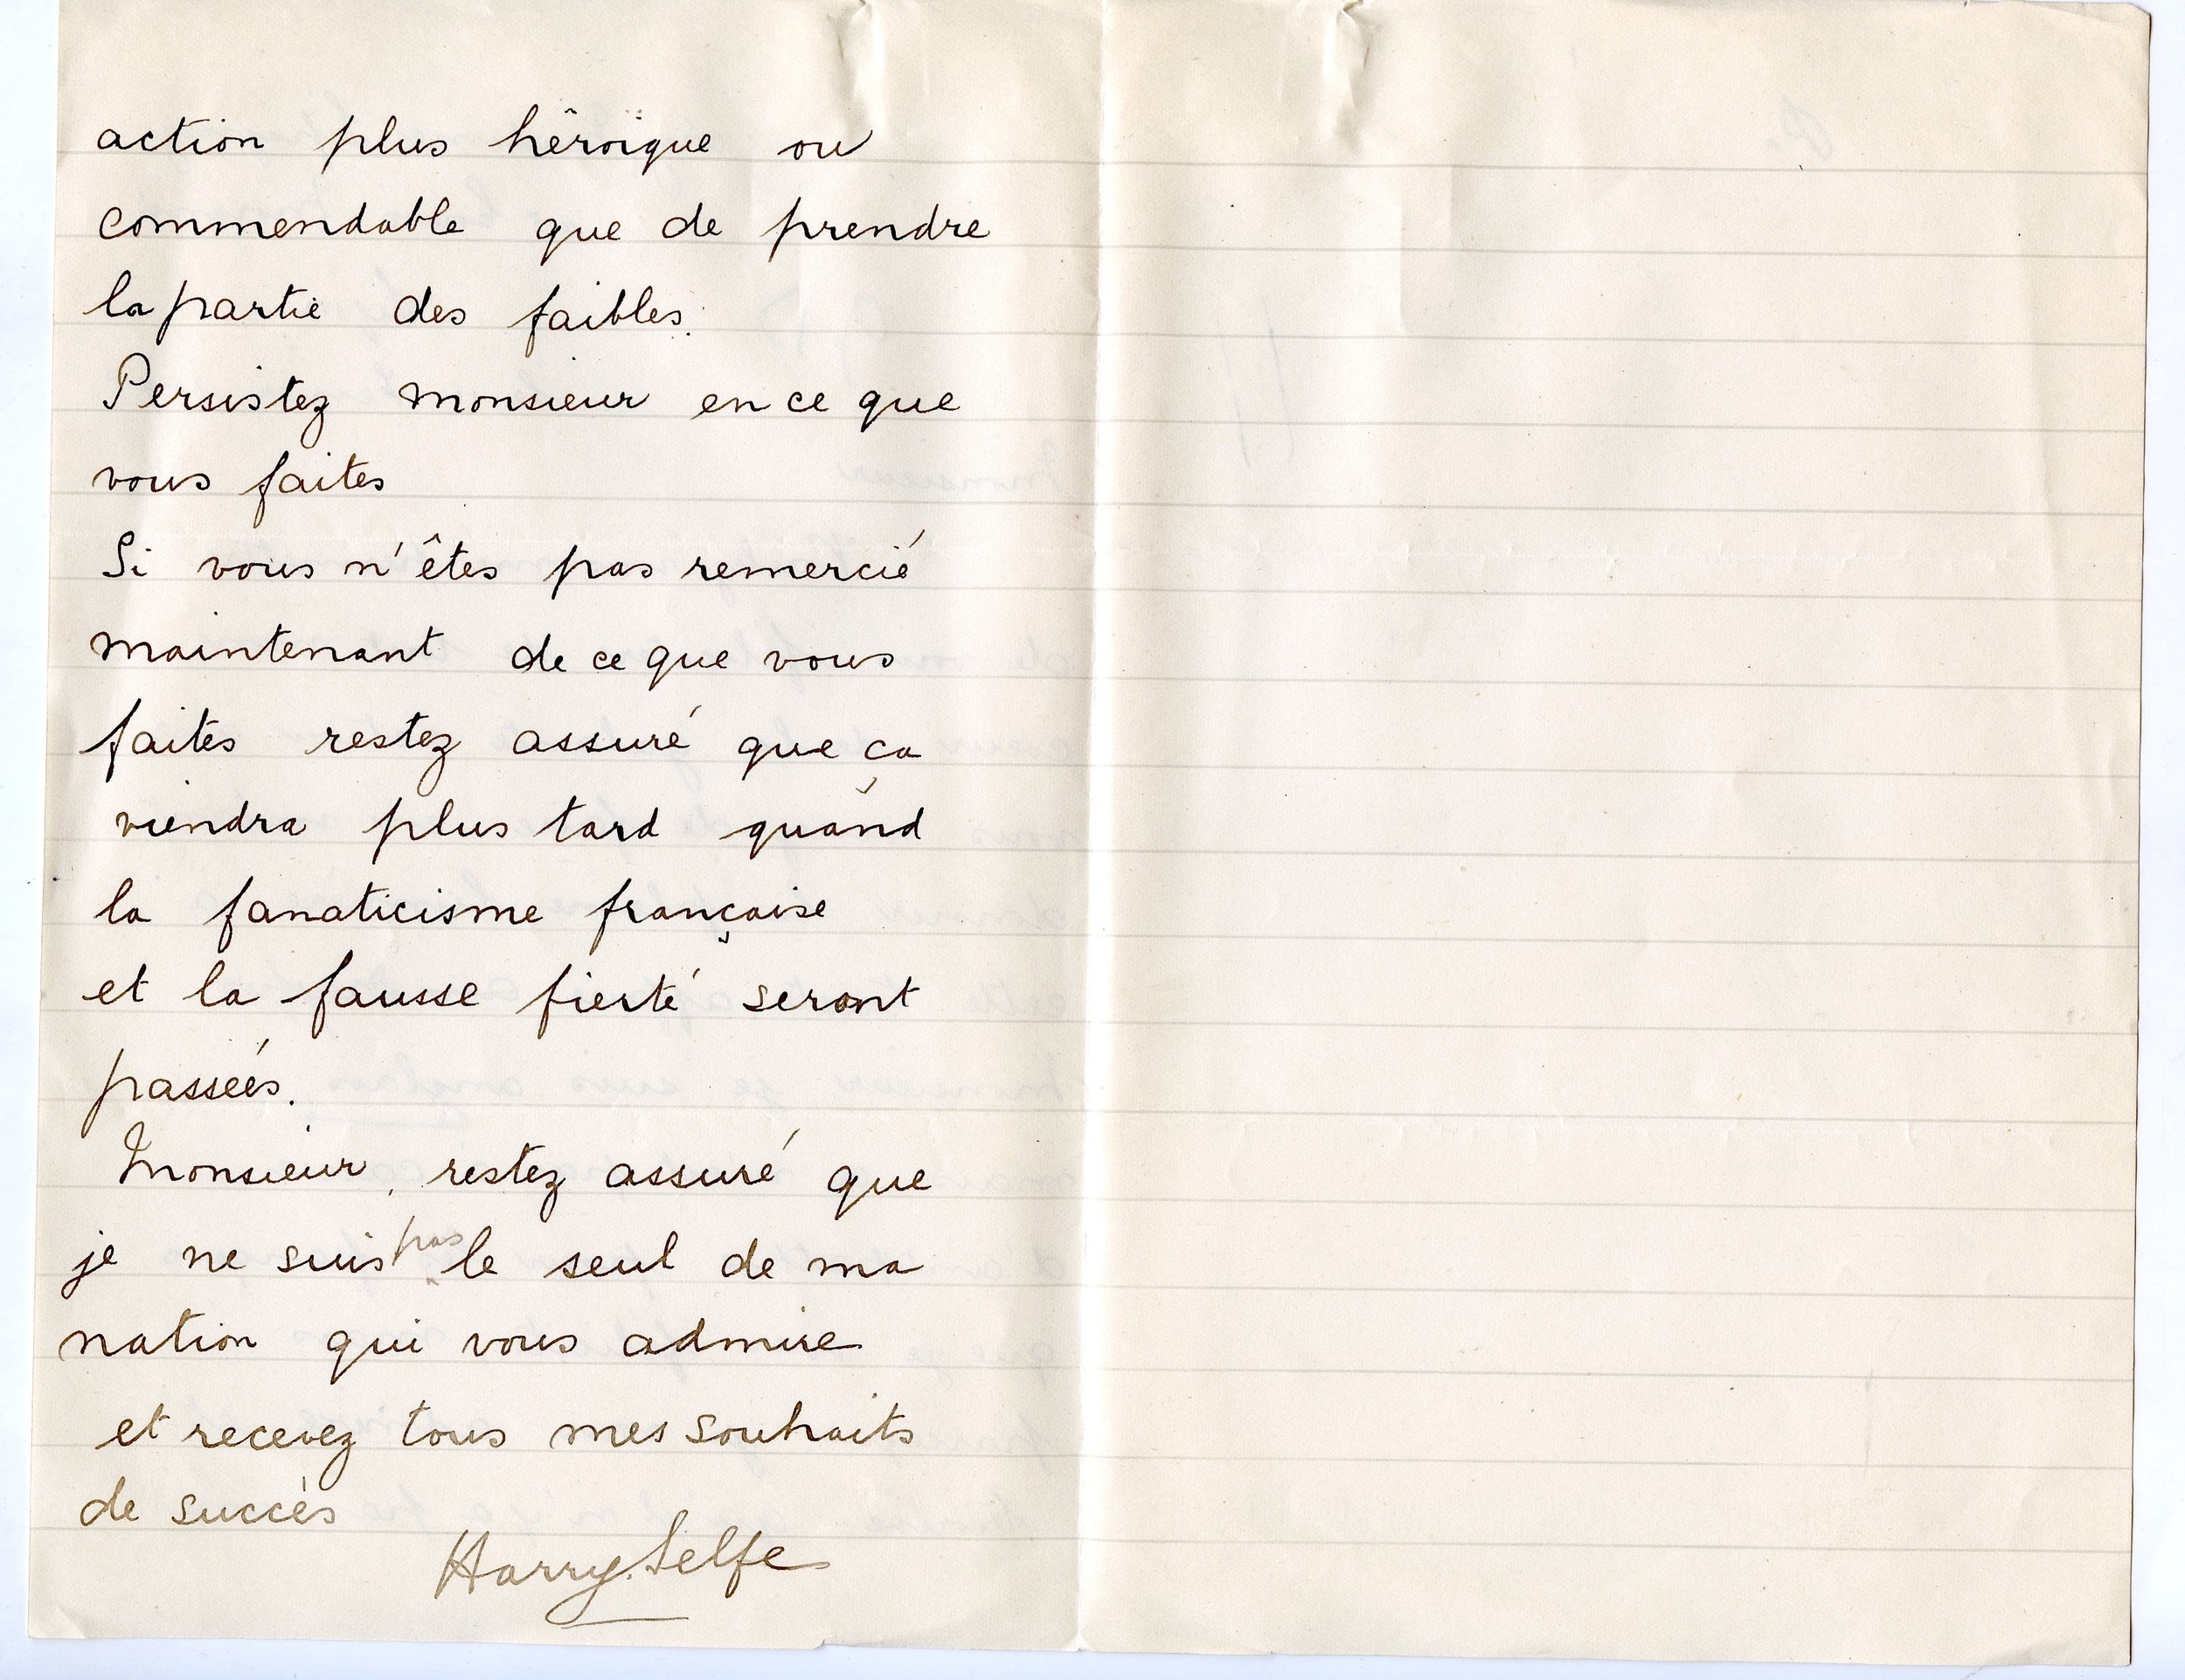 action plus hêroïque ou
commendable que de prendre
la partie des faibles.
Persistez monsieur en ce que
vous faites
Si vous n'êtes pas remercié
maintenant de ce que vous
faites restez assuré que ça
viendra plus tard quand
la fanaticisme française
et la fausse fierté seront
passées.
Monsieur, restez assuré que
je ne suis pas le seul de ma
nation qui vous admire
et recevez tous mes souhaits
de succès
Harry Selfe